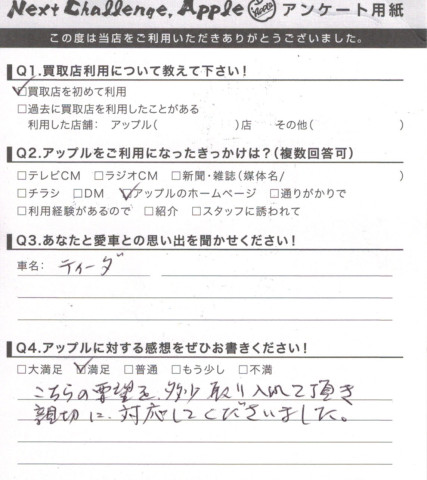 Next Challenge, Apple アンケート用紙
この度は当店をご利用いただきありがとうございました。
Q1.買取店利用について教えて下さい!
□買取店を初めて利用
□過去に買取店を利用したことがある
利用した店舗: アップル( )店 その他( )
Q2.アップルをご利用になったきっかけは?(複数回答可)
□テレビCM □ラジオCM □新聞・雑誌(媒体名/ )
□チラシ □DM □アップルのホームページ □通りがかりで
□利用経験があるので □紹介 □スタッフに誘われて
Q3.あなたと愛車との思い出を聞かせください!
車名: ティーダ
Q4.アップルに対する感想をぜひお書きください!
□大満足 □満足 □普通 □もう少し □不満
こちらの要望を、多少取り入れて頂き
親切に、対応してくださいました。